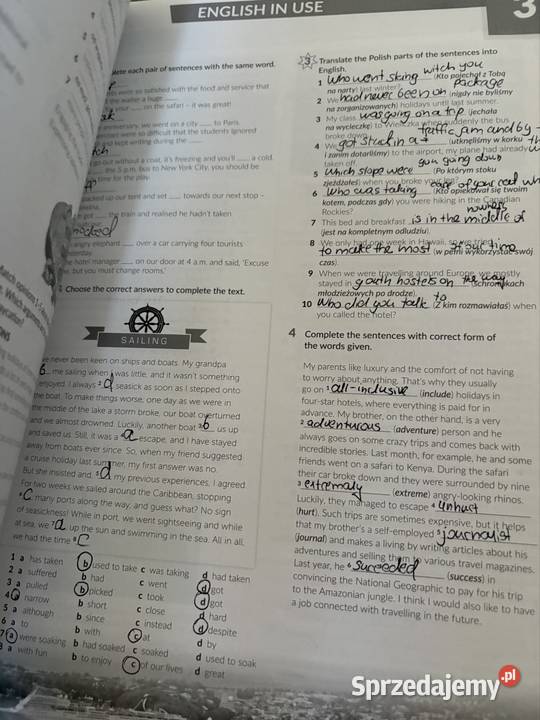 ENGLISH IN USE
3
lete each pair of sentences with the same word.
were so satisfied with the food and service that
the waiter a huge
your on the safari – it was great!
anniversary, we went on a city to Paris.
were so difficult that the students ignored
and kept writing during the
go out without a coat, it's freezing and you'll a cold.
the 5 p.m. bus to New York City, you should be
time for the play.
packed up our tent and set towards our next stop –
got the train and realised he hadn't taken
angry elephant over a car carrying four tourists
yesterday.
hotel manager on our door at 4 a.m. and said, 'Excuse
me, but you must change rooms.'
Choose the correct answers to complete the text.
SAILING
I've never been keen on ships and boats. My grandpa
b me sailing when I was little, and it wasn't something
enjoyed. I always 2 d seasick as soon as I stepped onto
the boat. To make things worse, one day as we were in
the middle of the lake a storm broke, our boat overturned
and we almost drowned. Luckily, another boat 3 b us up
and saved us. Still, it was a 4 a escape, and I have stayed
away from boats ever since. So, when my friend suggested
a cruise holiday last summer, my first answer was no.
But she insisted and, 5 d my previous experiences, I agreed.
For two weeks we sailed around the Caribbean, stopping
6 c many ports along the way, and guess what? No sign
of seasickness! While in port, we went sightseeing and while
at sea, we 7 a up the sun and swimming in the sea. All in all,
we had the time 8 c
1 a has taken b used to take c was taking d had taken
2 a suffered b had c went d got
3 a pulled b picked c took d got
4 a narrow b short c close d hard
5 a although b since c instead d despite
6 a to b with c at d by
7 a were soaking b had soaked c soaked d used to soak
8 a with fun b to enjoy c of our lives d great
3 Translate the Polish parts of the sentences into
English.
1 Who went skiing witch you (Kto pojechał z Tobą
na narty) last winter? package
2 We had never been on (nigdy nie byliśmy
na zorganizowanych) holidays until last summer.
3 My class was going on a trip (jechała
na wycieczkę) to Wieliczka when suddenly the bus
broke down. traffic jam and by
4 We got stuck in a (utknęliśmy w korku
i zanim dotarliśmy) to the airport, my plane had already
taken off. you going down
5 Which slope were (Po którym stoku
zjeżdżałeś) when you broke your leg?
6 Who was taking care of your cat wh (Kto opiekował się twoim
kotem, podczas gdy) you were hiking in the Canadian
Rockies?
7 This bed and breakfast is in the middle of nowhere
(jest na kompletnym odludziu).
8 We only had one week in Hawaii, so we tried
to make the most of our time (w pełni wykorzystać swój
czas).
9 When we were travelling around Europe, we mostly
stayed in youth hostels on the way (schroniskach
młodzieżowych po drodze).
10 Who did you talk to (z kim rozmawiałaś) when
you called the hotel?
4 Complete the sentences with correct form of
the words given.
My parents like luxury and the comfort of not having
to worry about anything. That's why they usually
go on 1 all-inclusive (include) holidays in
four-star hotels, where everything is paid for in
advance. My brother, on the other hand, is a very
2 adventurous (adventure) person and he
always goes on some crazy trips and comes back with
incredible stories. Last month, for example, he and some
friends went on a safari to Kenya. During the safari
their car broke down and they were surrounded by nine
3 extremaly (extreme) angry-looking rhinos.
Luckily, they managed to escape 4 unhurt
(hurt). Such trips are sometimes expensive, but it helps
that my brother's a self-employed 5 journalist
(journal) and makes a living by writing articles about his
adventures and selling them to various travel magazines.
Last year, he 6 succeeded (success) in
convincing the National Geographic to pay for his trip
to the Amazonian jungle. I think I would also like to have
a job connected with travelling in the future.
Sprzedajemy.pl